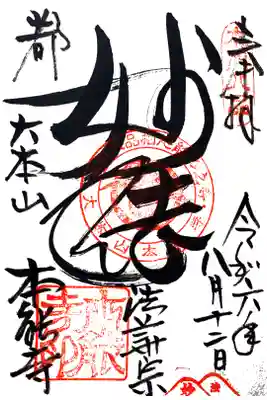 奉拝
令和六年
八月十二日
妙法
法華宗
都
大本山
本能寺